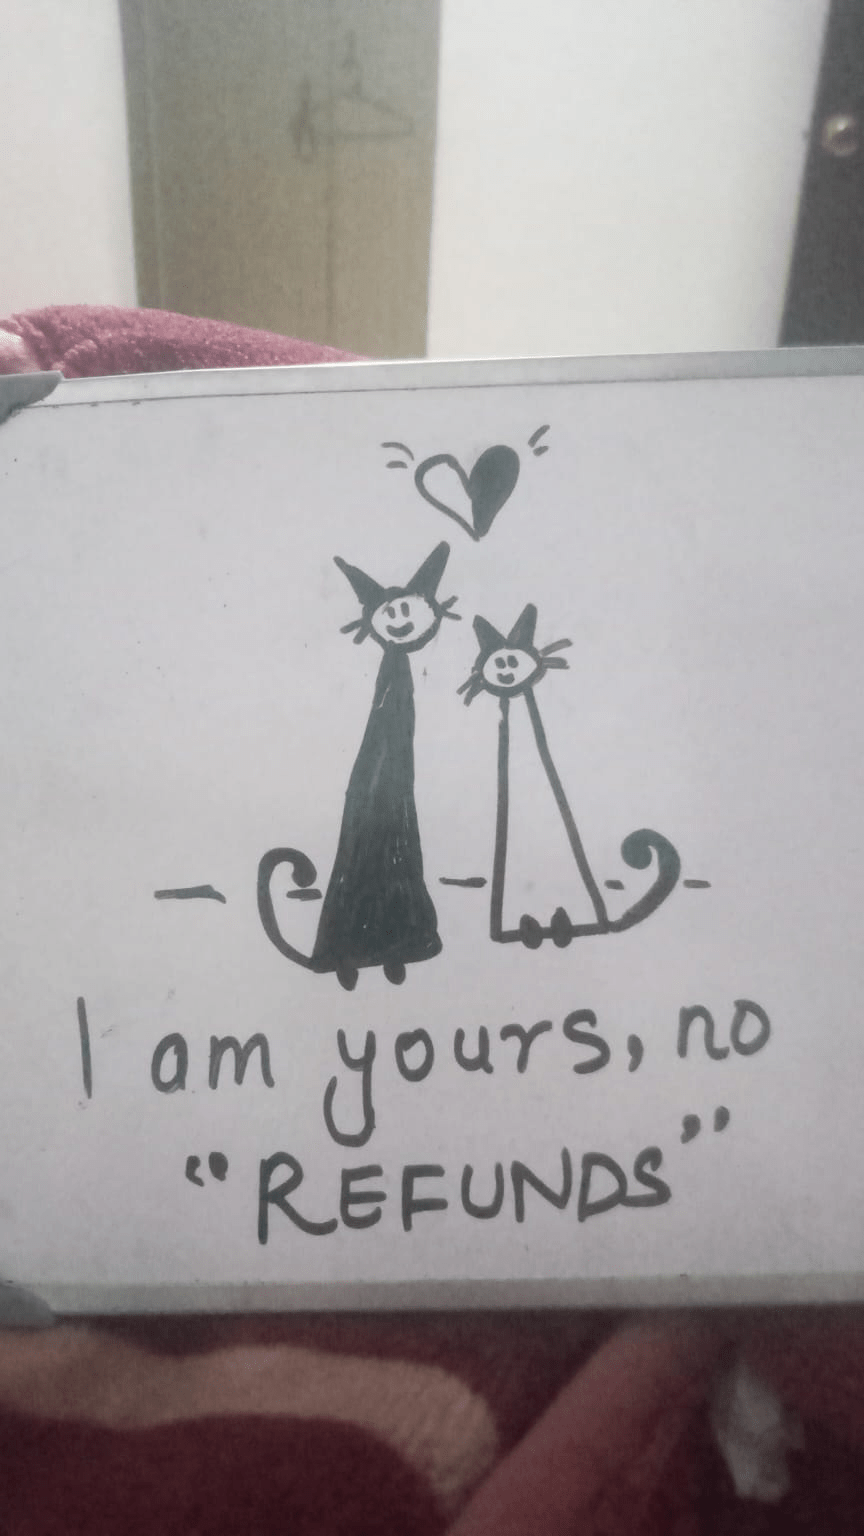 I am yours, no
"REFUNDS"